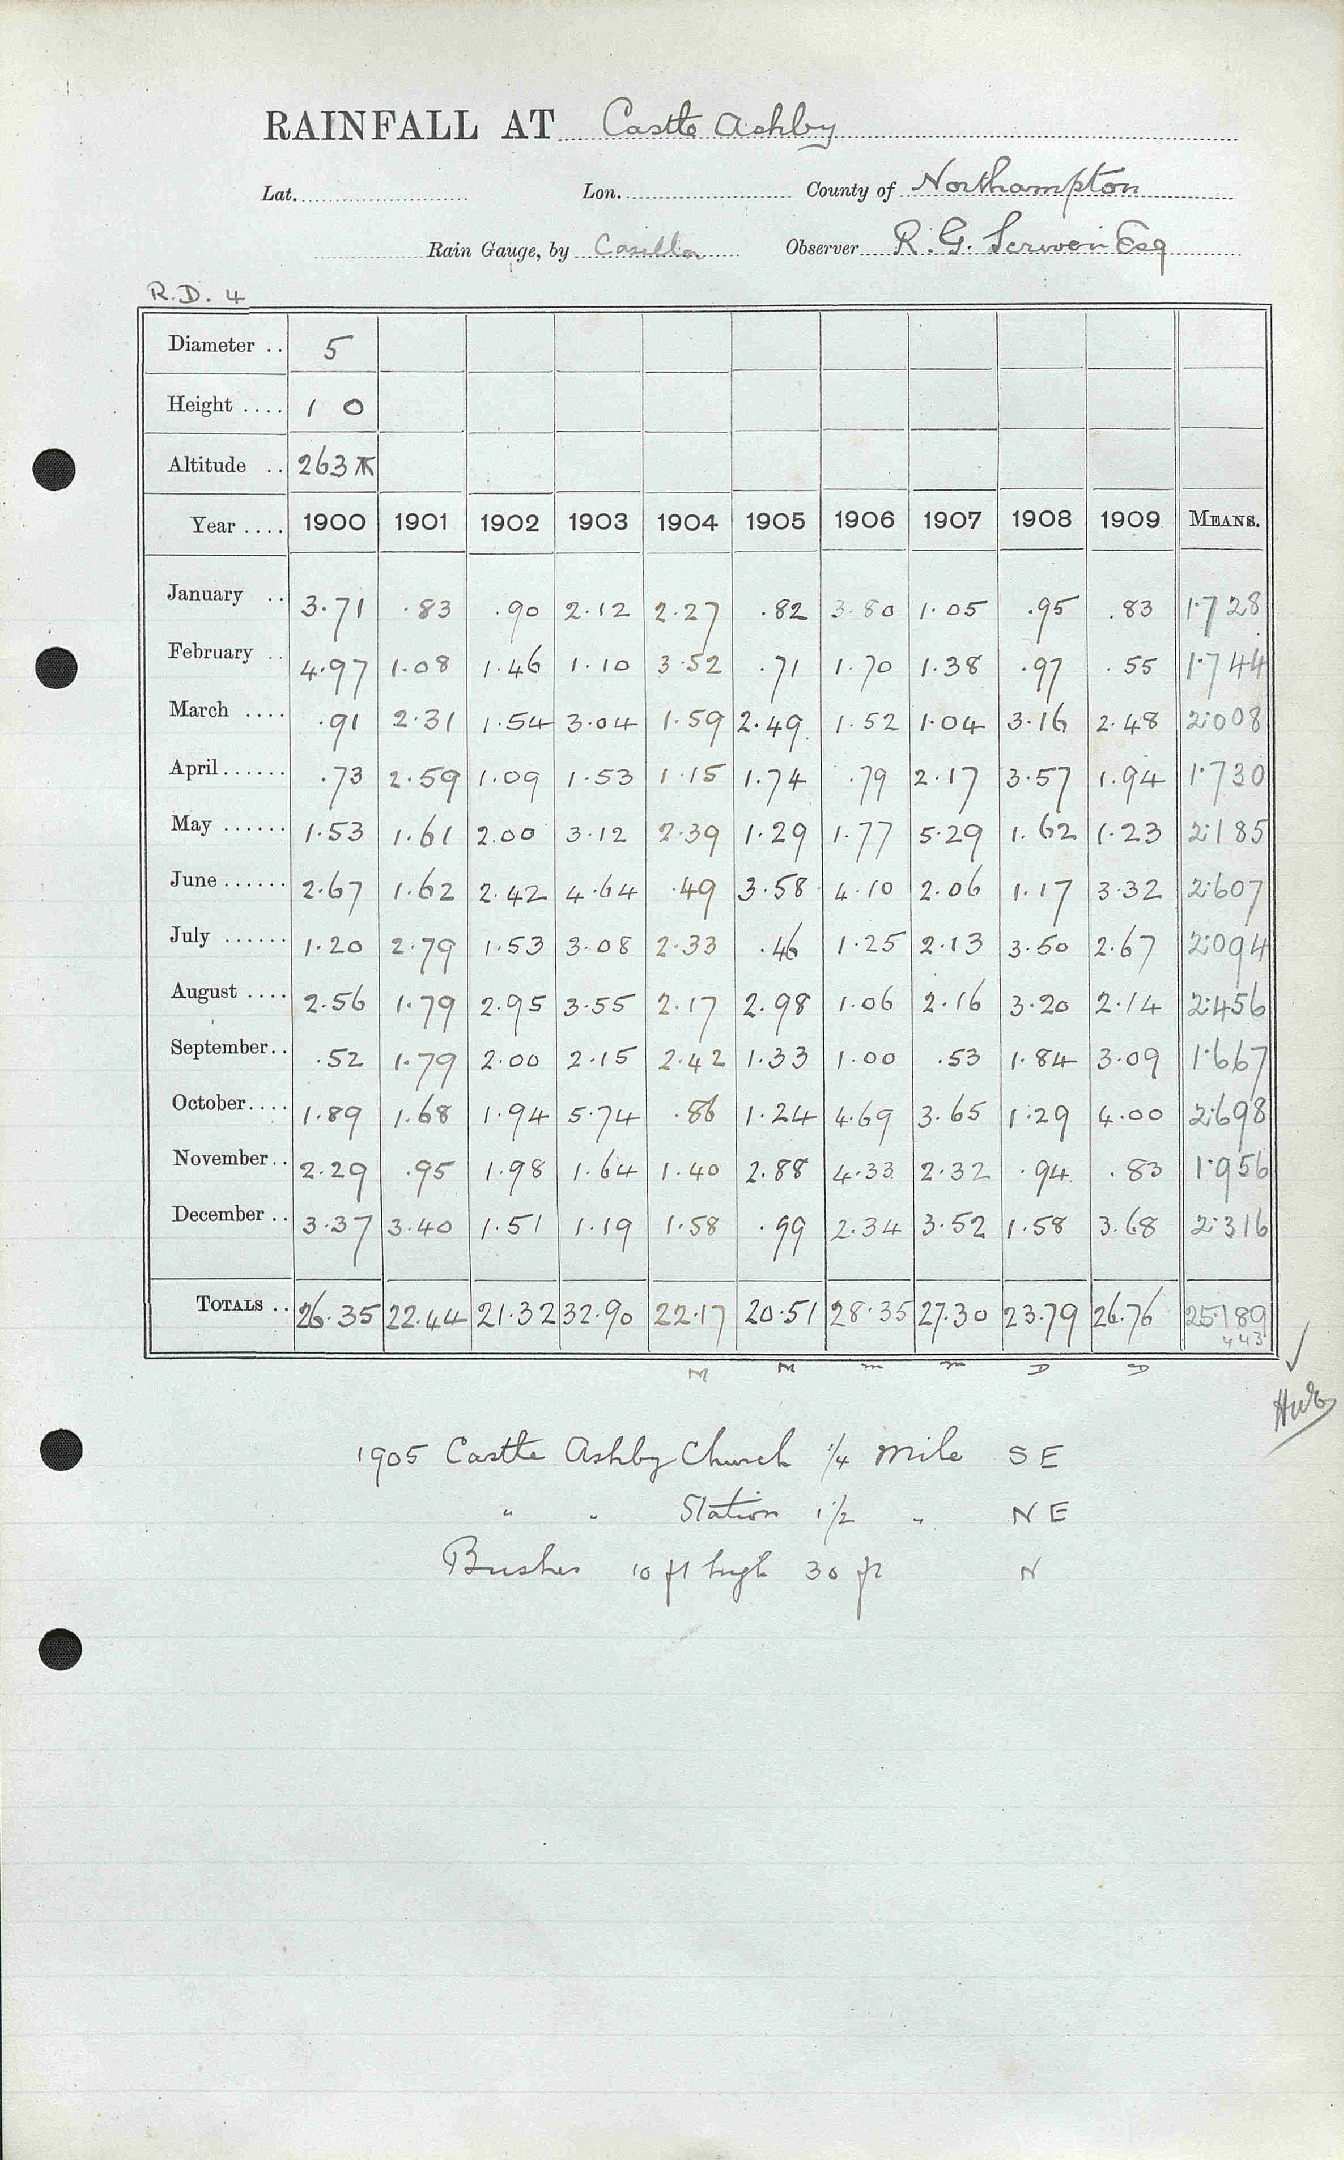 RAINFALL AT Castle Ashby
Lat. Lon. County of Northampton
Rain Gauge, by Casella Observer R. G. Scriven Esq
R.D. 4
Diameter .. 5
Height .... 1 0
Altitude .. 263
Year .... 1900 1901 1902 1903 1904 1905 1906 1907 1908 1909 MEANS.
January .. 3.71 .83 .90 2.12 2.27 .82 3.80 1.05 .95 .83 1.728
February .. 4.97 1.08 1.46 1.10 3.52 .71 1.70 1.38 .97 .55 1.744
March .... .91 2.31 1.54 3.04 1.59 2.49 1.52 1.04 3.16 2.48 2.008
April...... .73 2.59 1.09 1.53 1.15 1.74 .79 2.17 3.57 1.94 1.730
May ...... 1.53 1.61 2.00 3.12 2.39 1.29 1.77 5.29 1.62 1.23 2.185
June ...... 2.67 1.62 2.42 4.64 .49 3.58 4.10 2.06 1.17 3.32 2.607
July ...... 1.20 2.79 1.53 3.08 2.33 .46 1.25 2.13 3.50 2.67 2.094
August .... 2.56 1.79 2.95 3.55 2.17 2.98 1.06 2.16 3.20 2.14 2.456
September.. .52 1.79 2.00 2.15 2.42 1.33 1.00 .53 1.84 3.09 1.667
October.... 1.89 1.68 1.94 5.74 .86 1.24 4.69 3.65 1.29 4.00 2.698
November.. 2.29 .95 1.98 1.64 1.40 2.88 4.33 2.32 .94 .83 1.956
December .. 3.37 3.40 1.51 1.19 1.58 .99 2.34 3.52 1.58 3.68 2.316
TOTALS .. 26.35 22.44 21.32 32.90 22.17 20.51 28.35 27.30 23.79 26.76 25.189
443
M M m m D D
1905 Castle Ashby Church 1/4 mile SE
" " Station 1 1/2 " NE
Bushes 10 ft high 30 ft N